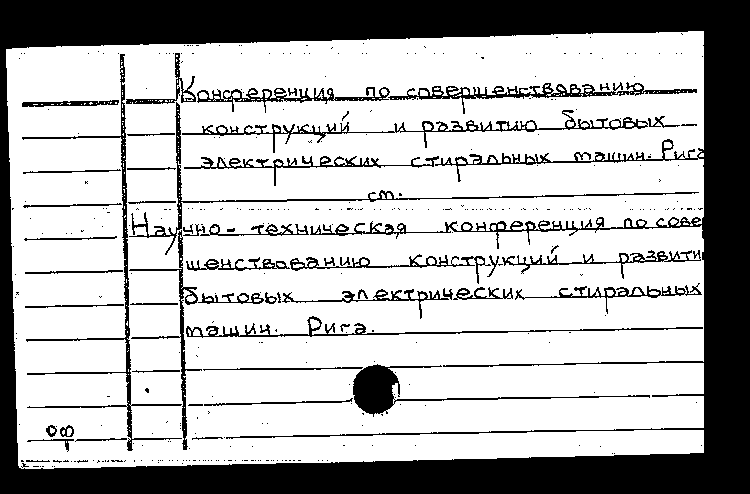 Конференция по совершенствованию
конструкций и развитию бытовых
электрических стиральных машин. Рига
см.
Научно-техническая конференция по сове
шенствованию конструкций и развити
бытовых электрических стиральных
машин. Рига.